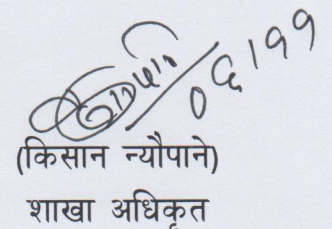 ०६।११
(किसान न्यौपाने)
शाखा अधिकृत